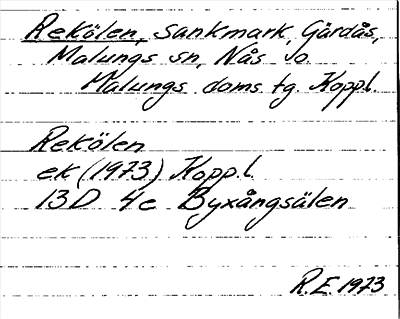 Rekölen, sankmark, Gärdås,
Malungs sn, Nås fo.
Malungs doms. tg. Koppl.
Rekölen
ek (1973) Koppl.
13D 4e Byxångsälen
R.E. 1973